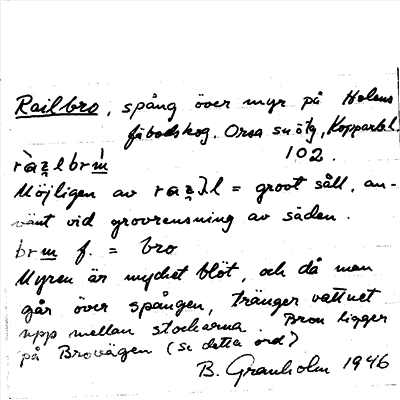 Railbro, spång över myr på Holens
fäbodskog, Orsa sn ötg, Kopparb. l.
102.
Möjligen av = groot såll, an-
vänt vid grovrensning av säden.
f. = bro
Myren är mycket blöt, och då man
går över spången, tränger vattnet
upp mellan stockarna. Bron ligger
på Brovägen (se detta ord)
B. Granholm 1946